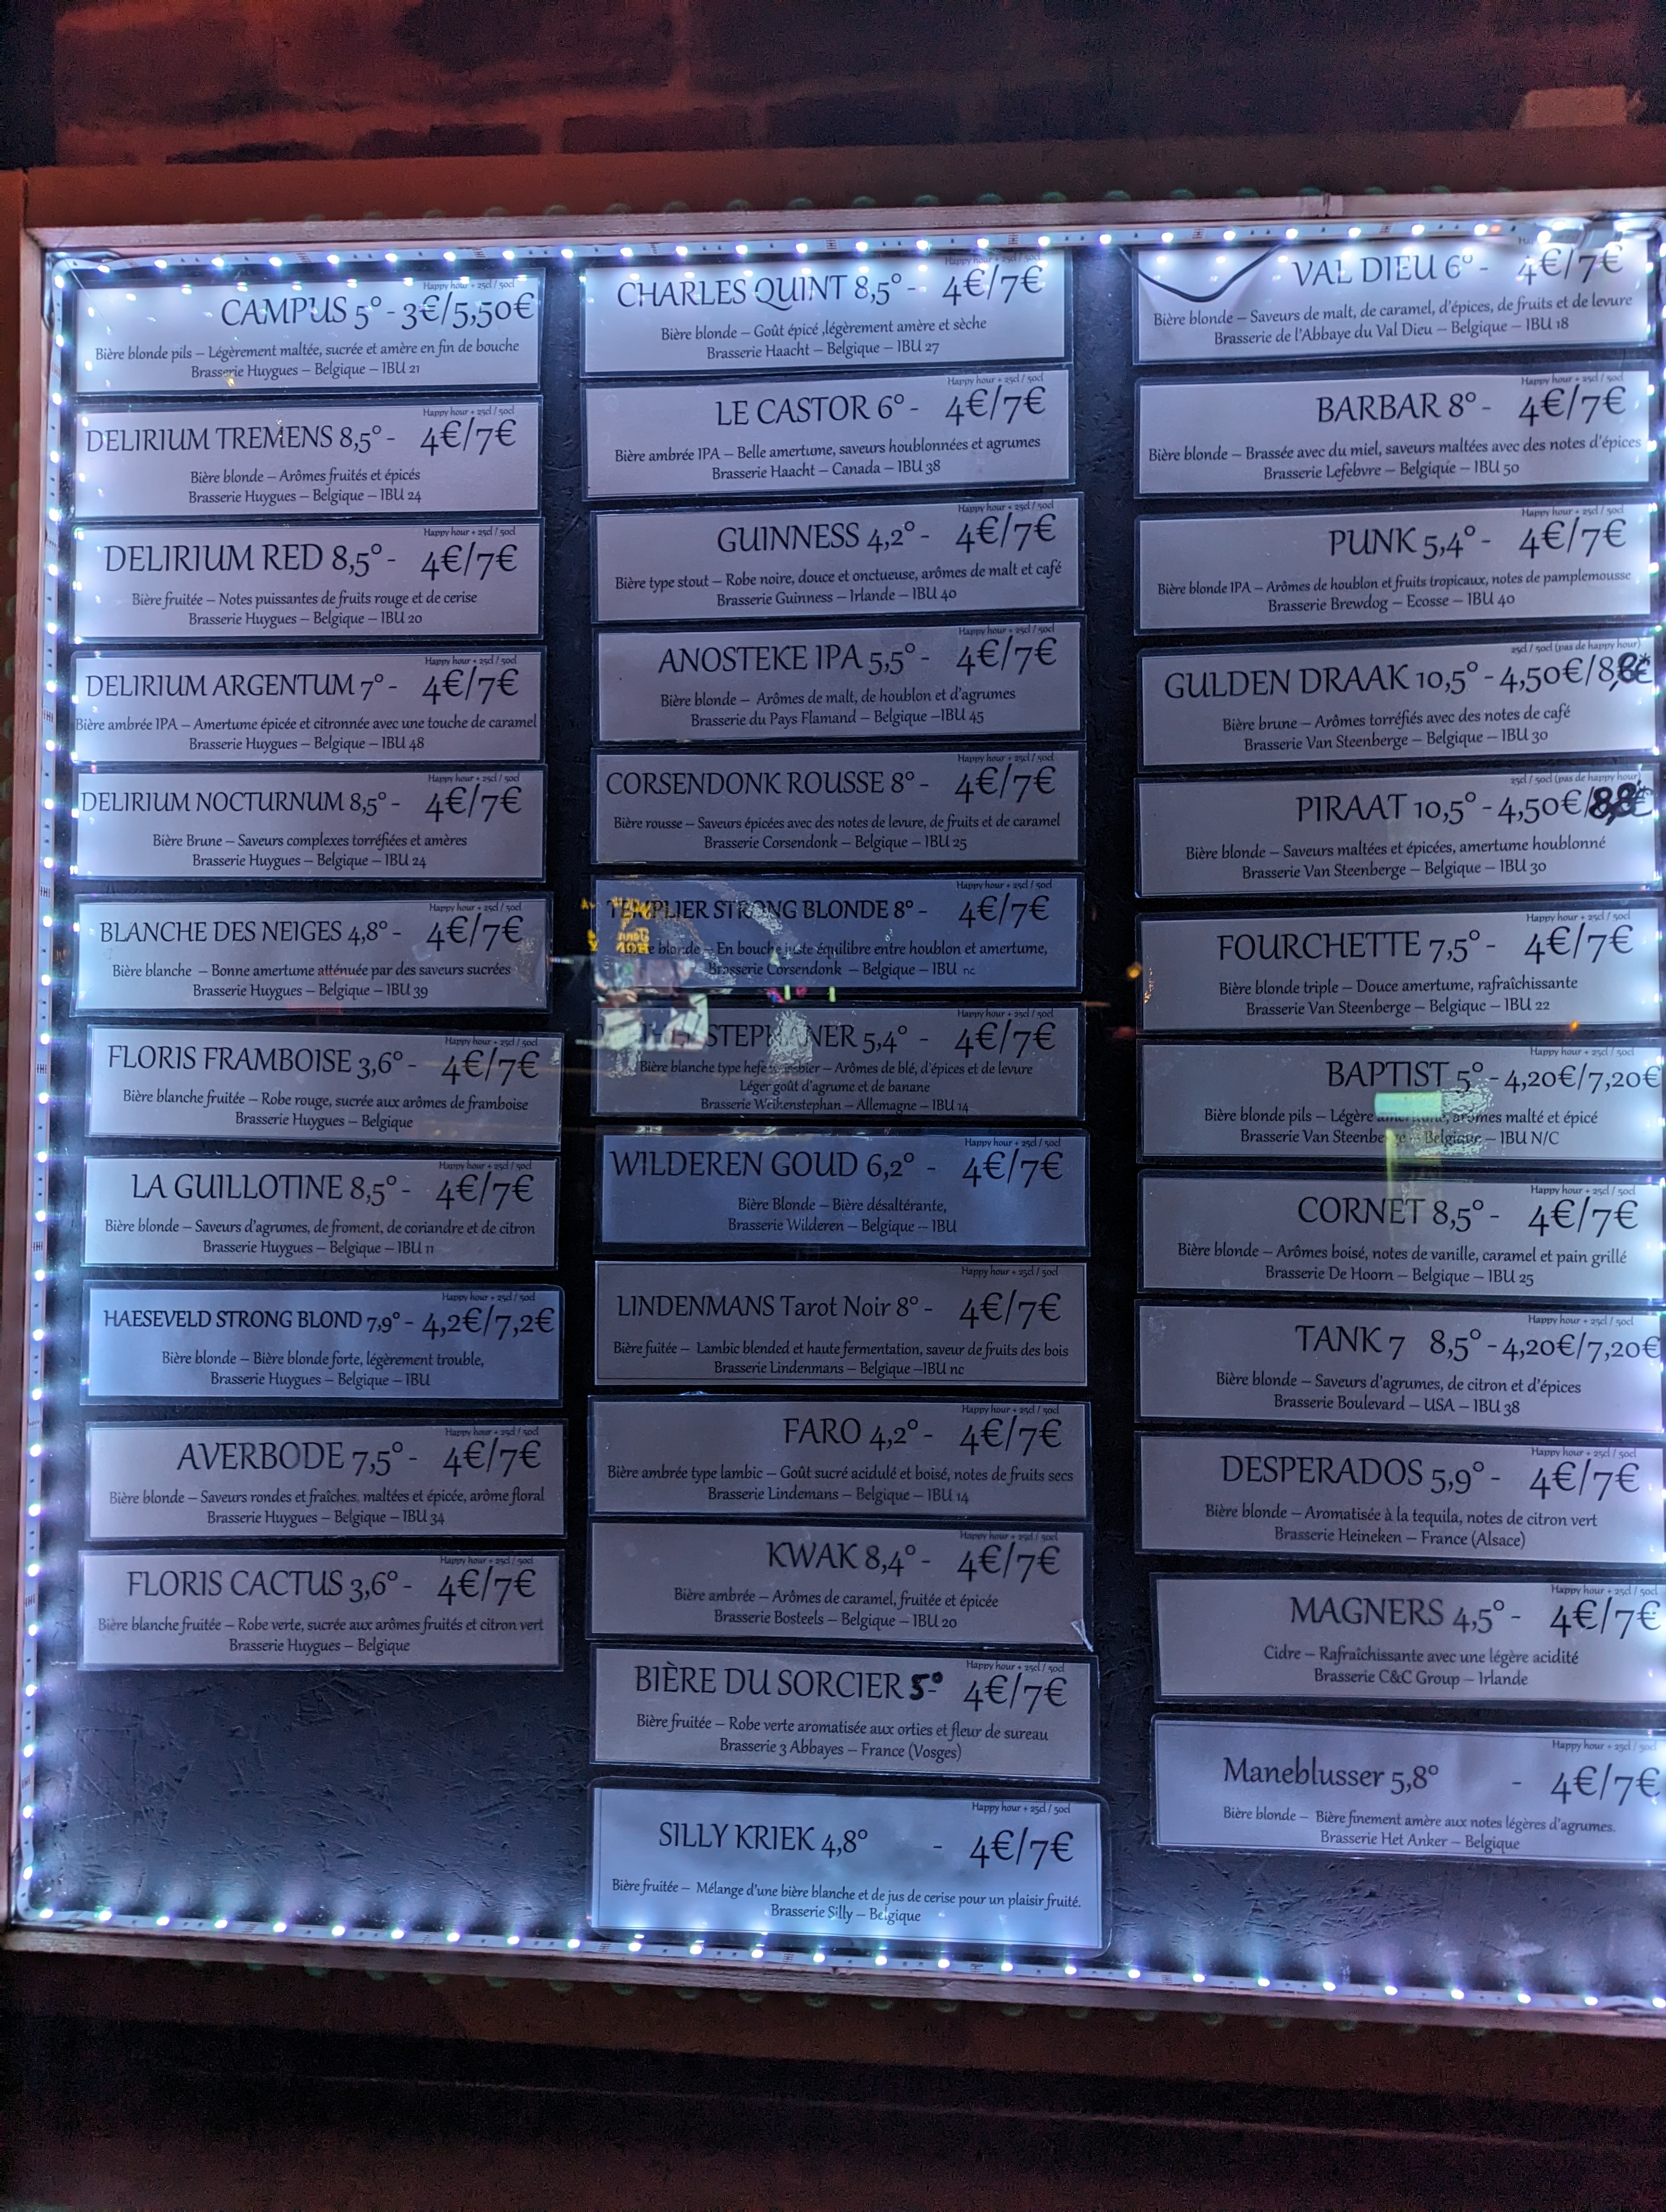 Happy hour + 25cl / 50cl
CAMPUS 5° - 3€/5,50€
Bière blonde pils – Légèrement maltée, sucrée et amère en fin de bouche
Brasserie Huygues – Belgique – IBU 21
Happy hour + 25cl / 50cl
DELIRIUM TREMENS 8,5° - 4€/7€
Bière blonde – Arômes fruités et épicés
Brasserie Huygues – Belgique – IBU 24
Happy hour + 25cl / 50cl
DELIRIUM RED 8,5° - 4€/7€
Bière fruitée – Notes puissantes de fruits rouge et de cerise
Brasserie Huygues – Belgique – IBU 20
Happy hour + 25cl / 50cl
DELIRIUM ARGENTUM 7° - 4€/7€
Bière ambrée IPA – Amertume épicée et citronnée avec une touche de caramel
Brasserie Huygues – Belgique – IBU 48
Happy hour + 25cl / 50cl
DELIRIUM NOCTURNUM 8,5° - 4€/7€
Bière Brune – Saveurs complexes torréfiées et amères
Brasserie Huygues – Belgique – IBU 24
Happy hour + 25cl / 50cl
BLANCHE DES NEIGES 4,8° - 4€/7€
Bière blanche – Bonne amertume atténuée par des saveurs sucrées
Brasserie Huygues – Belgique – IBU 39
Happy hour + 25cl / 50cl
FLORIS FRAMBOISE 3,6° - 4€/7€
Bière blanche fruitée – Robe rouge, sucrée aux arômes de framboise
Brasserie Huygues – Belgique
Happy hour + 25cl / 50cl
LA GUILLOTINE 8,5° - 4€/7€
Bière blonde – Saveurs d'agrumes, de froment, de coriandre et de citron
Brasserie Huygues – Belgique – IBU 11
Happy hour + 25cl / 50cl
HAESEVELD STRONG BLOND 7,9° - 4,2€/7,2€
Bière blonde – Bière blonde forte, légèrement trouble,
Brasserie Huygues – Belgique – IBU
Happy hour + 25cl / 50cl
AVERBODE 7,5° - 4€/7€
Bière blonde – Saveurs rondes et fraîches, maltées et épicée, arôme floral
Brasserie Huygues – Belgique – IBU 34
Happy hour + 25cl / 50cl
FLORIS CACTUS 3,6° - 4€/7€
Bière blanche fruitée – Robe verte, sucrée aux arômes fruités et citron vert
Brasserie Huygues – Belgique
Happy hour + 25cl / 50cl
CHARLES QUINT 8,5° - 4€/7€
Bière blonde – Goût épicé ,légèrement amère et sèche
Brasserie Haacht – Belgique – IBU 27
Happy hour + 25cl / 50cl
LE CASTOR 6° - 4€/7€
Bière ambrée IPA – Belle amertume, saveurs houblonnées et agrumes
Brasserie Haacht – Canada – IBU 38
Happy hour + 25cl / 50cl
GUINNESS 4,2° - 4€/7€
Bière type stout – Robe noire, douce et onctueuse, arômes de malt et café
Brasserie Guinness – Irlande – IBU 40
Happy hour + 25cl / 50cl
ANOSTEKE IPA 5,5° - 4€/7€
Bière blonde – Arômes de malt, de houblon et d'agrumes
Brasserie du Pays Flamand – Belgique –IBU 45
Happy hour + 25cl / 50cl
CORSENDONK ROUSSE 8° - 4€/7€
Bière rousse – Saveurs épicées avec des notes de levure, de fruits et de caramel
Brasserie Corsendonk – Belgique – IBU 25
Happy hour + 25cl / 50cl
TEMPLIER STRONG BLONDE 8° - 4€/7€
blonde – En bouche juste équilibre entre houblon et amertume,
Brasserie Corsendonk – Belgique – IBU nc
Happy hour + 25cl / 50cl
5,4° - 4€/7€
Bière blanche type – Arômes de blé, d'épices et de levure
Léger goût d'agrume et de banane
Brasserie Weihenstephan – Allemagne – IBU 14
Happy hour + 25cl / 50cl
WILDEREN GOUD 6,2° - 4€/7€
Bière Blonde – Bière désaltérante,
Brasserie Wilderen – Belgique – IBU
Happy hour + 25cl / 50cl
LINDENMANS Tarot Noir 8° - 4€/7€
Bière fuitée – Lambic blended et haute fermentation, saveur de fruits des bois
Brasserie Lindenmans – Belgique –IBU nc
Happy hour + 25cl / 50cl
FARO 4,2° - 4€/7€
Bière ambrée type lambic – Goût sucré acidulé et boisé, notes de fruits secs
Brasserie Lindemans – Belgique – IBU 14
Happy hour + 25cl / 50cl
KWAK 8,4° - 4€/7€
Bière ambrée – Arômes de caramel, fruitée et épicée
Brasserie Bosteels – Belgique – IBU 20
Happy hour + 25cl / 50cl
BIÈRE DU SORCIER 5° 4€/7€
Bière fruitée – Robe verte aromatisée aux orties et fleur de sureau
Brasserie 3 Abbayes – France (Vosges)
Happy hour + 25cl / 50cl
SILLY KRIEK 4,8° - 4€/7€
Bière fruitée – Mélange d'une bière blanche et de jus de cerise pour un plaisir fruité.
Brasserie Silly – Belgique
VAL DIEU 6° - 4€/7€
Bière blonde – Saveurs de malt, de caramel, d'épices, de fruits et de levure
Brasserie de l'Abbaye du Val Dieu – Belgique – IBU 18
Happy hour + 25cl / 50cl
BARBAR 8° - 4€/7€
Bière blonde – Brassée avec du miel, saveurs maltées avec des notes d'épices
Brasserie Lefebvre – Belgique – IBU 50
Happy hour + 25cl / 50cl
PUNK 5,4° - 4€/7€
Bière blonde IPA – Arômes de houblon et fruits tropicaux, notes de pamplemousse
Brasserie Brewdog – Ecosse – IBU 40
25cl / 50cl (pas de happy hour)
GULDEN DRAAK 10,5° - 4,50€/8,8€
Bière brune – Arômes torréfiés avec des notes de café
Brasserie Van Steenberge – Belgique – IBU 30
25cl / 50cl (pas de happy hour)
PIRAAT 10,5° - 4,50€/
Bière blonde – Saveurs maltées et épicées, amertume houblonné
Brasserie Van Steenberge – Belgique – IBU 30
Happy hour + 25cl / 50cl
FOURCHETTE 7,5° - 4€/7€
Bière blonde triple – Douce amertume, rafraîchissante
Brasserie Van Steenberge – Belgique – IBU 22
Happy hour + 25cl / 50cl
BAPTIST 5° - 4,20€/7,20€
Bière blonde pils – Légère amertume, arômes malté et épicé
Brasserie Van Steenberge – Belgique – IBU N/C
Happy hour + 25cl / 50cl
CORNET 8,5° - 4€/7€
Bière blonde – Arômes boisé, notes de vanille, caramel et pain grillé
Brasserie De Hoorn – Belgique – IBU 25
Happy hour + 25cl / 50cl
TANK 7 8,5° - 4,20€/7,20€
Bière blonde – Saveurs d'agrumes, de citron et d'épices
Brasserie Boulevard – USA – IBU 38
Happy hour + 25cl / 50cl
DESPERADOS 5,9° - 4€/7€
Bière blonde – Aromatisée à la tequila, notes de citron vert
Brasserie Heineken – France (Alsace)
Happy hour + 25cl / 50cl
MAGNERS 4,5° - 4€/7€
Cidre – Rafraîchissante avec une légère acidité
Brasserie C&C Group – Irlande
Happy hour + 25cl / 50cl
Maneblusser 5,8° - 4€/7€
Bière blonde – Bière finement amère aux notes légères d'agrumes.
Brasserie Het Anker – Belgique